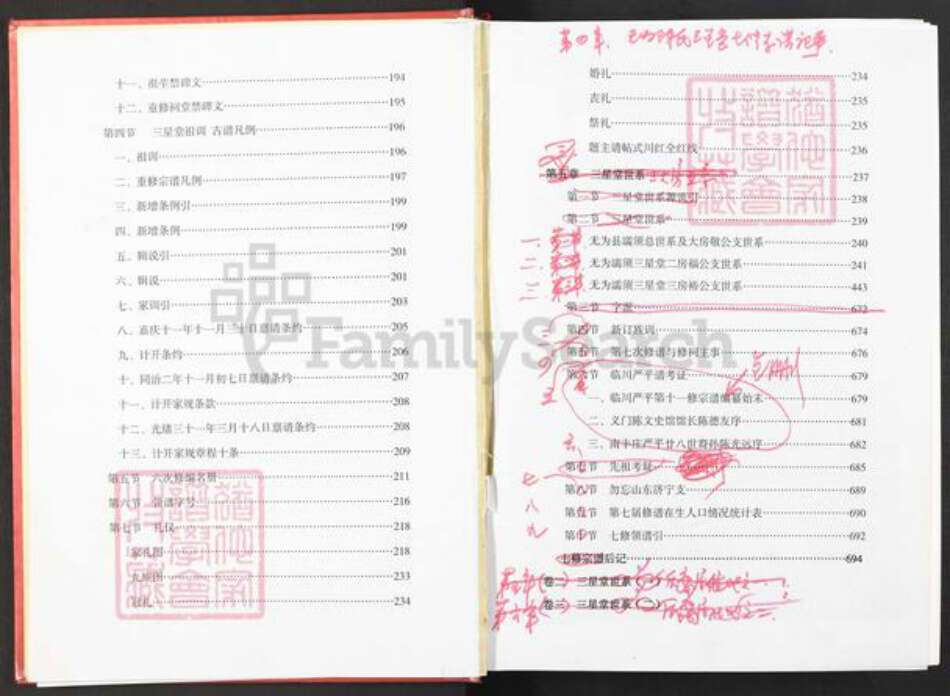 十一、很牽禁碑文 194
十二、重修祠堂禁碑文 195
第四节 三星堂祖训 古谱凡例 196
一、祖训 196
二、重修宗谱凡例 197
三、新增条例引 199
四、新增条例 199
五、辑说引 201
六、辑说 201
七、家训引 203
八、嘉庆十一年十一月三十日禀请条约 205
九、计开条约 206
十、同治二年十一月初七日禀请条约 207
十一、计开家规条款 208
十二、光绪三十一年三月十八日禀请条约 208
十三、计开家规章程十条 209
第五节 六次修编名册 211
第六节 领谱字号 216
第七节 礼仪 218
家礼图 218
九族图 233
冠礼 234
第四章
婚礼 234
丧礼 235
祭礼 235
题主请帖式川红全红线 236
第五章 三星堂世系 237
第一节 三星堂世系源流引 238
第二节 三星堂世系 239
一、无为县濡须总世系及大房敬公支世系 240
二、无为濡须三星堂二房福公支世系 241
三、无为濡须三星堂三房裕公支世系 443
第三节 字派 672
第四节 新订族训 674
第五节 第七次修谱与修祠主事 676
第六节 临川严平谱考证 679
一、临川严平第十一修宗谱编纂始末 679
二、义门陈文史馆馆长陈德友序 681
三、南丰庄严平廿八世裔孙陈光远序 682
第七节 先祖考证 685
第八节 勿忘山东济宁支 689
第九节 第七届修谱在生人口情况统计表 690
第十节 七修领谱引 692
七修宗谱后记 694
卷二 三星堂世系(一)
卷三 三星堂世系(二)
FamilySearch